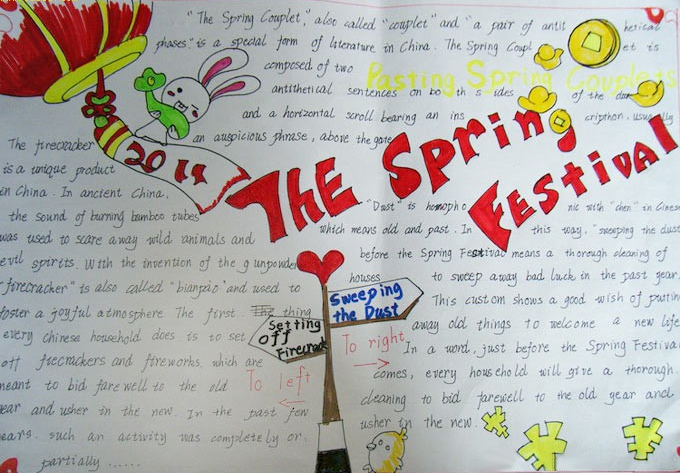 "The Spring Couplet," also called "couplet" and "a pair of antit hetical
phases." is a special form of literature in China. The Spring Coupl et is
composed of two
Pasting Spring Couplets
antithetical sentences on bo th s ides of the door
and a horizontal scroll bearing an ins cripthon, usually
an auspicious phrase, above the gate
2011
The Spring
Festival
The firecracker
is a unique product
in China. In ancient China,
the sound of burning bamboo tubes
was used to scare away wild animals and
evil spirits. With the invention of the gunpowder
"firecracker" is also called "bianpao" and used to
foster a joyful atmosphere The first thing
every chinese household does is to set
off firecrackers and fireworks. which are
meant to bid farewell to the old
year and usher in the new. In the past few
years. such an activity was completely or
partially ......
Setting
off
Firecrack
To left
Sweeping
the Dust
To right
"Dust" is homopho nic with "chen" in Cinese
which means old and past. In this way, "sweeping the dust
before the Spring Festival means a thorough cleaning of
houses to sweep away bad luck in the past year.
This custom shows a good wish of putting
away old things to welcome a new life
In a word, just before the Spring Festival
comes, every household will give a thorough.
cleaning to bid farewell to the old year and
usher in the new.